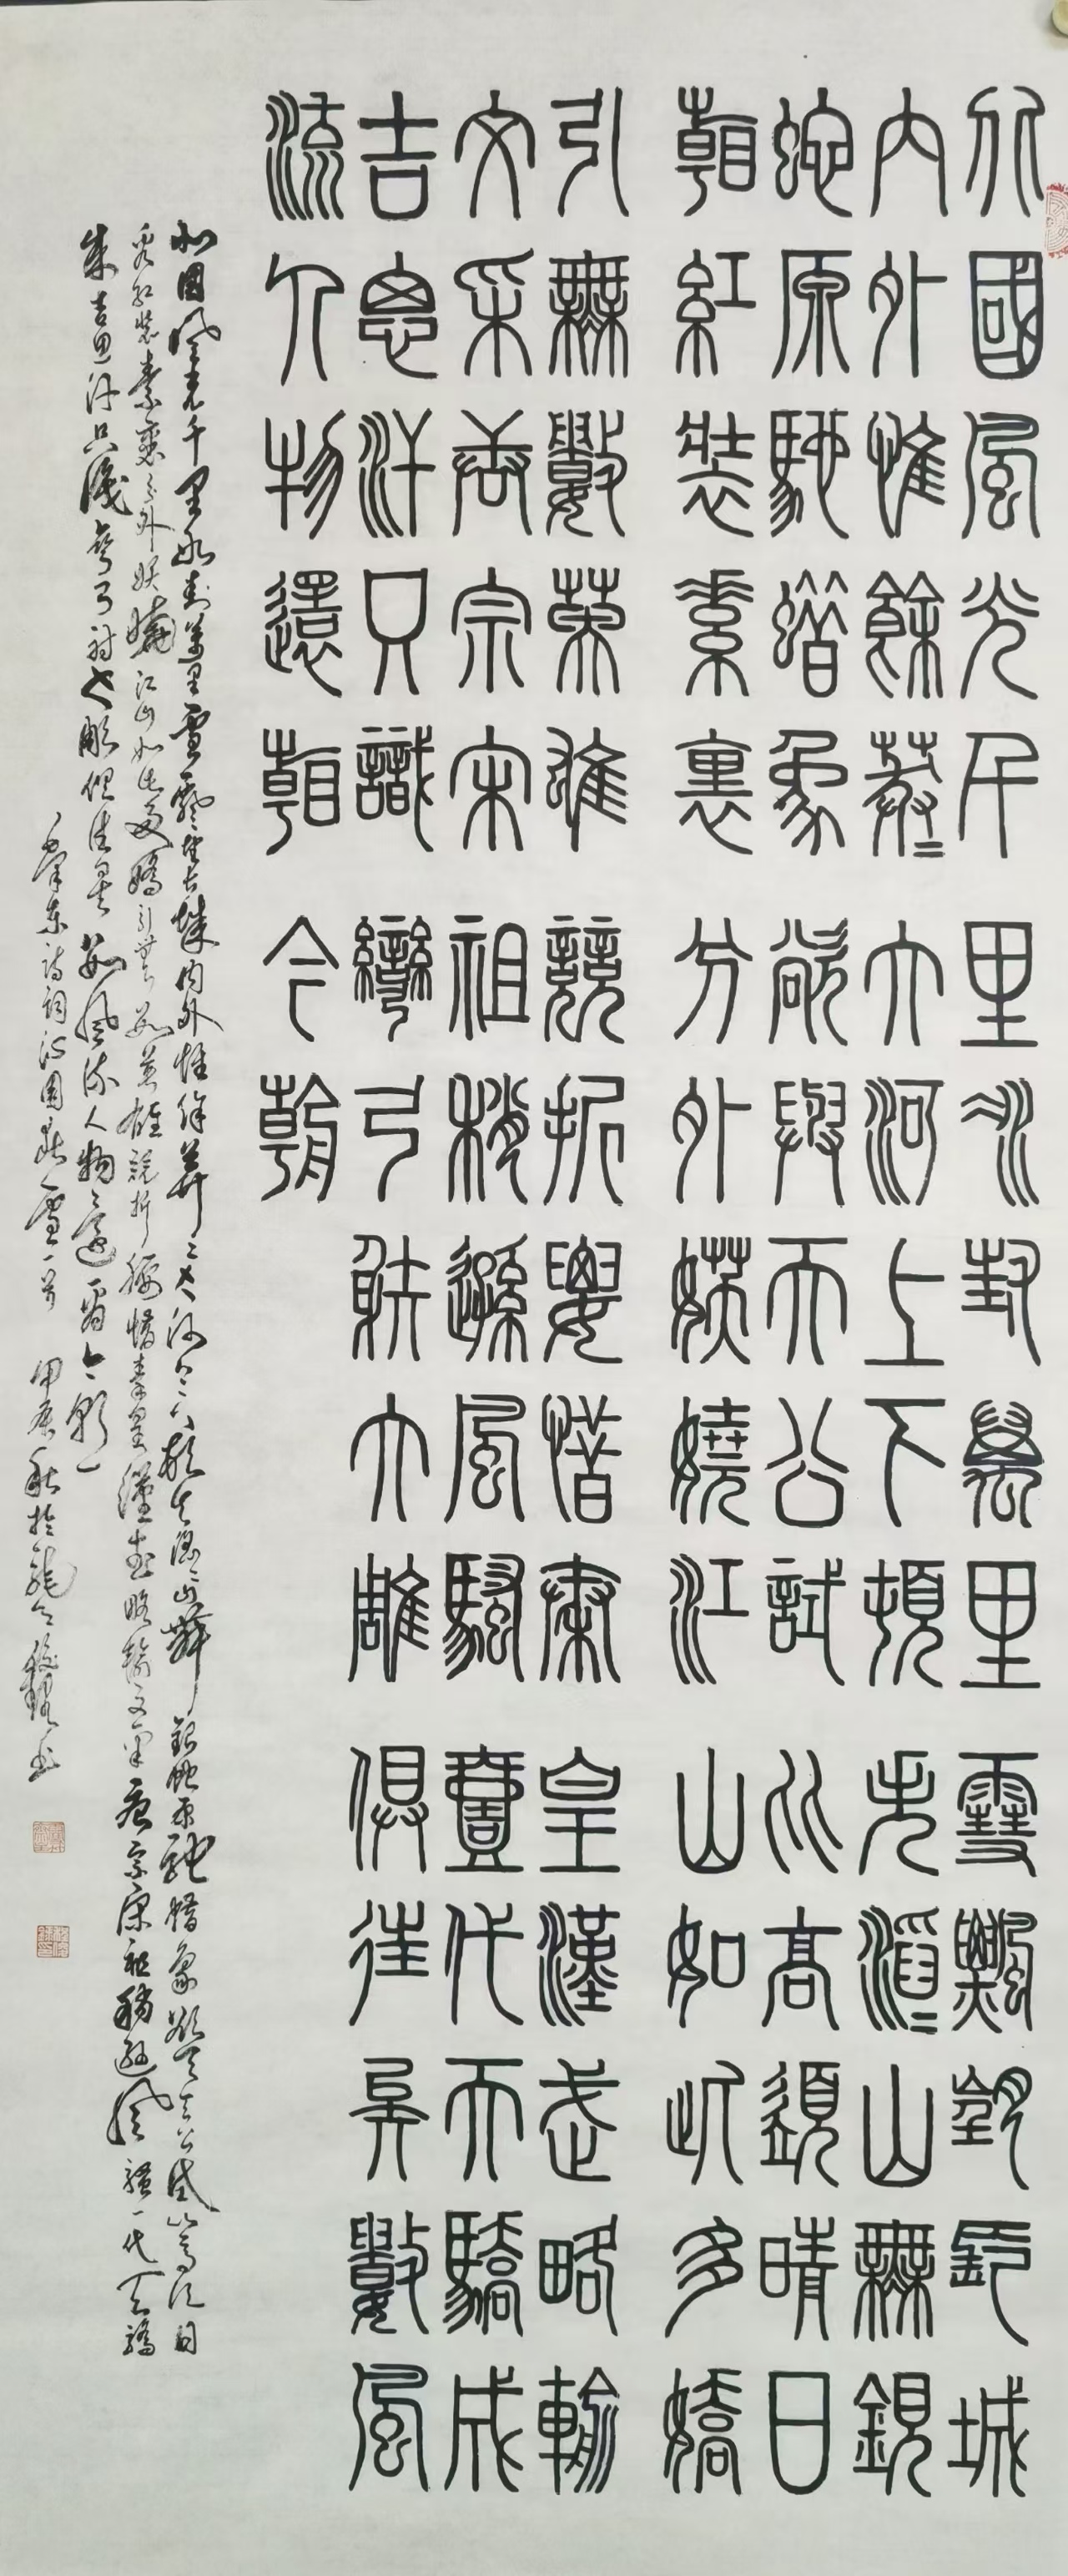 北國風光千里冰封萬里雪飄望長城
內外惟餘莽〻大河上下頓失滔〻山舞銀
蛇原馳蠟象欲與天公試比高須晴日
看紅裝素裹分外妖嬈江山如此多嬌
引無數英雄競折腰惜秦皇漢武略輸
文采唐宗宋祖稍遜風騷壹代天驕成
吉思汗只識彎弓射大雕俱往矣數風
流人物還看今朝
北國風光千里冰封萬里雪飄望長城內外惟餘莽〻大河上下頓失滔〻山舞銀蛇原馳蠟象欲與天公試比高須晴日
看紅裝素裹分外妖嬈江山如此多嬌引無數英雄競折腰惜秦皇漢武略輸文采唐宗宋祖稍遜風騷一代天驕
成吉思汗只識彎弓射大雕俱往矣數風流人物還看今朝
毛澤東詩詞沁園春雪一首 甲辰秋於龍書